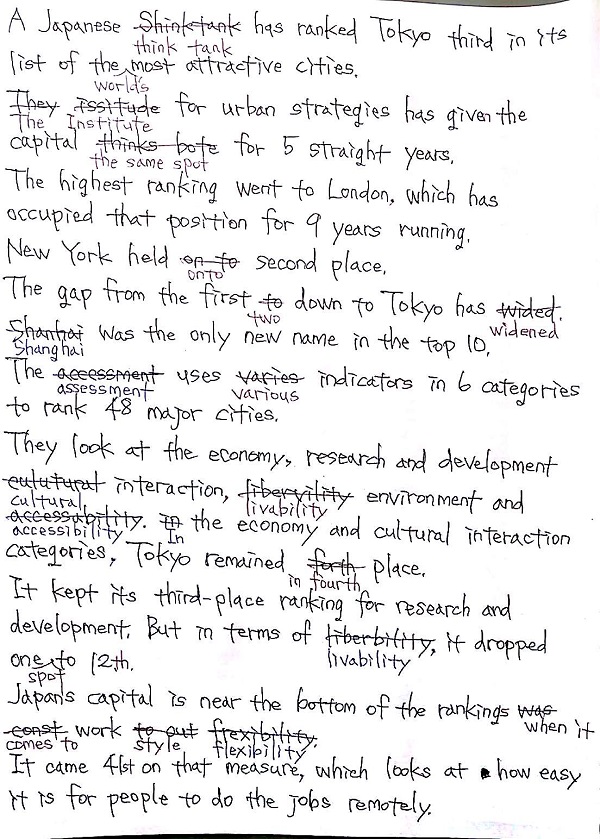 A Japanese Shinktank has ranked Tokyo third in its
think tank
list of the most attractive cities.
world's
They issitude for urban strategies has given the
The Institute
capital thinks bote for 5 straight years.
the same spot
The highest ranking went to London, which has
occupied that position for 9 years running.
New York held on to second place.
onto
The gap from the first to down to Tokyo has wided.
two widened
Shanhai was the only new name in the top 10.
Shanghai
The accessment uses varies indicators in 6 categories
assessment various
to rank 48 major cities.
They look at the economy, research and development
culutural interaction, liberyility environment and
cultural livability
accessubility. in the economy and cultural interaction
accessibility In
categories, Tokyo remained forth place.
in fourth
It kept its third-place ranking for research and
development. But in terms of liberbility, it dropped
livability
one to 12th.
spot
Japan's capital is near the bottom of the rankings was
when it
const work to out frexibility.
comes to style flexibility
It came 41st on that measure, which looks at how easy
it is for people to do the jobs remotely.